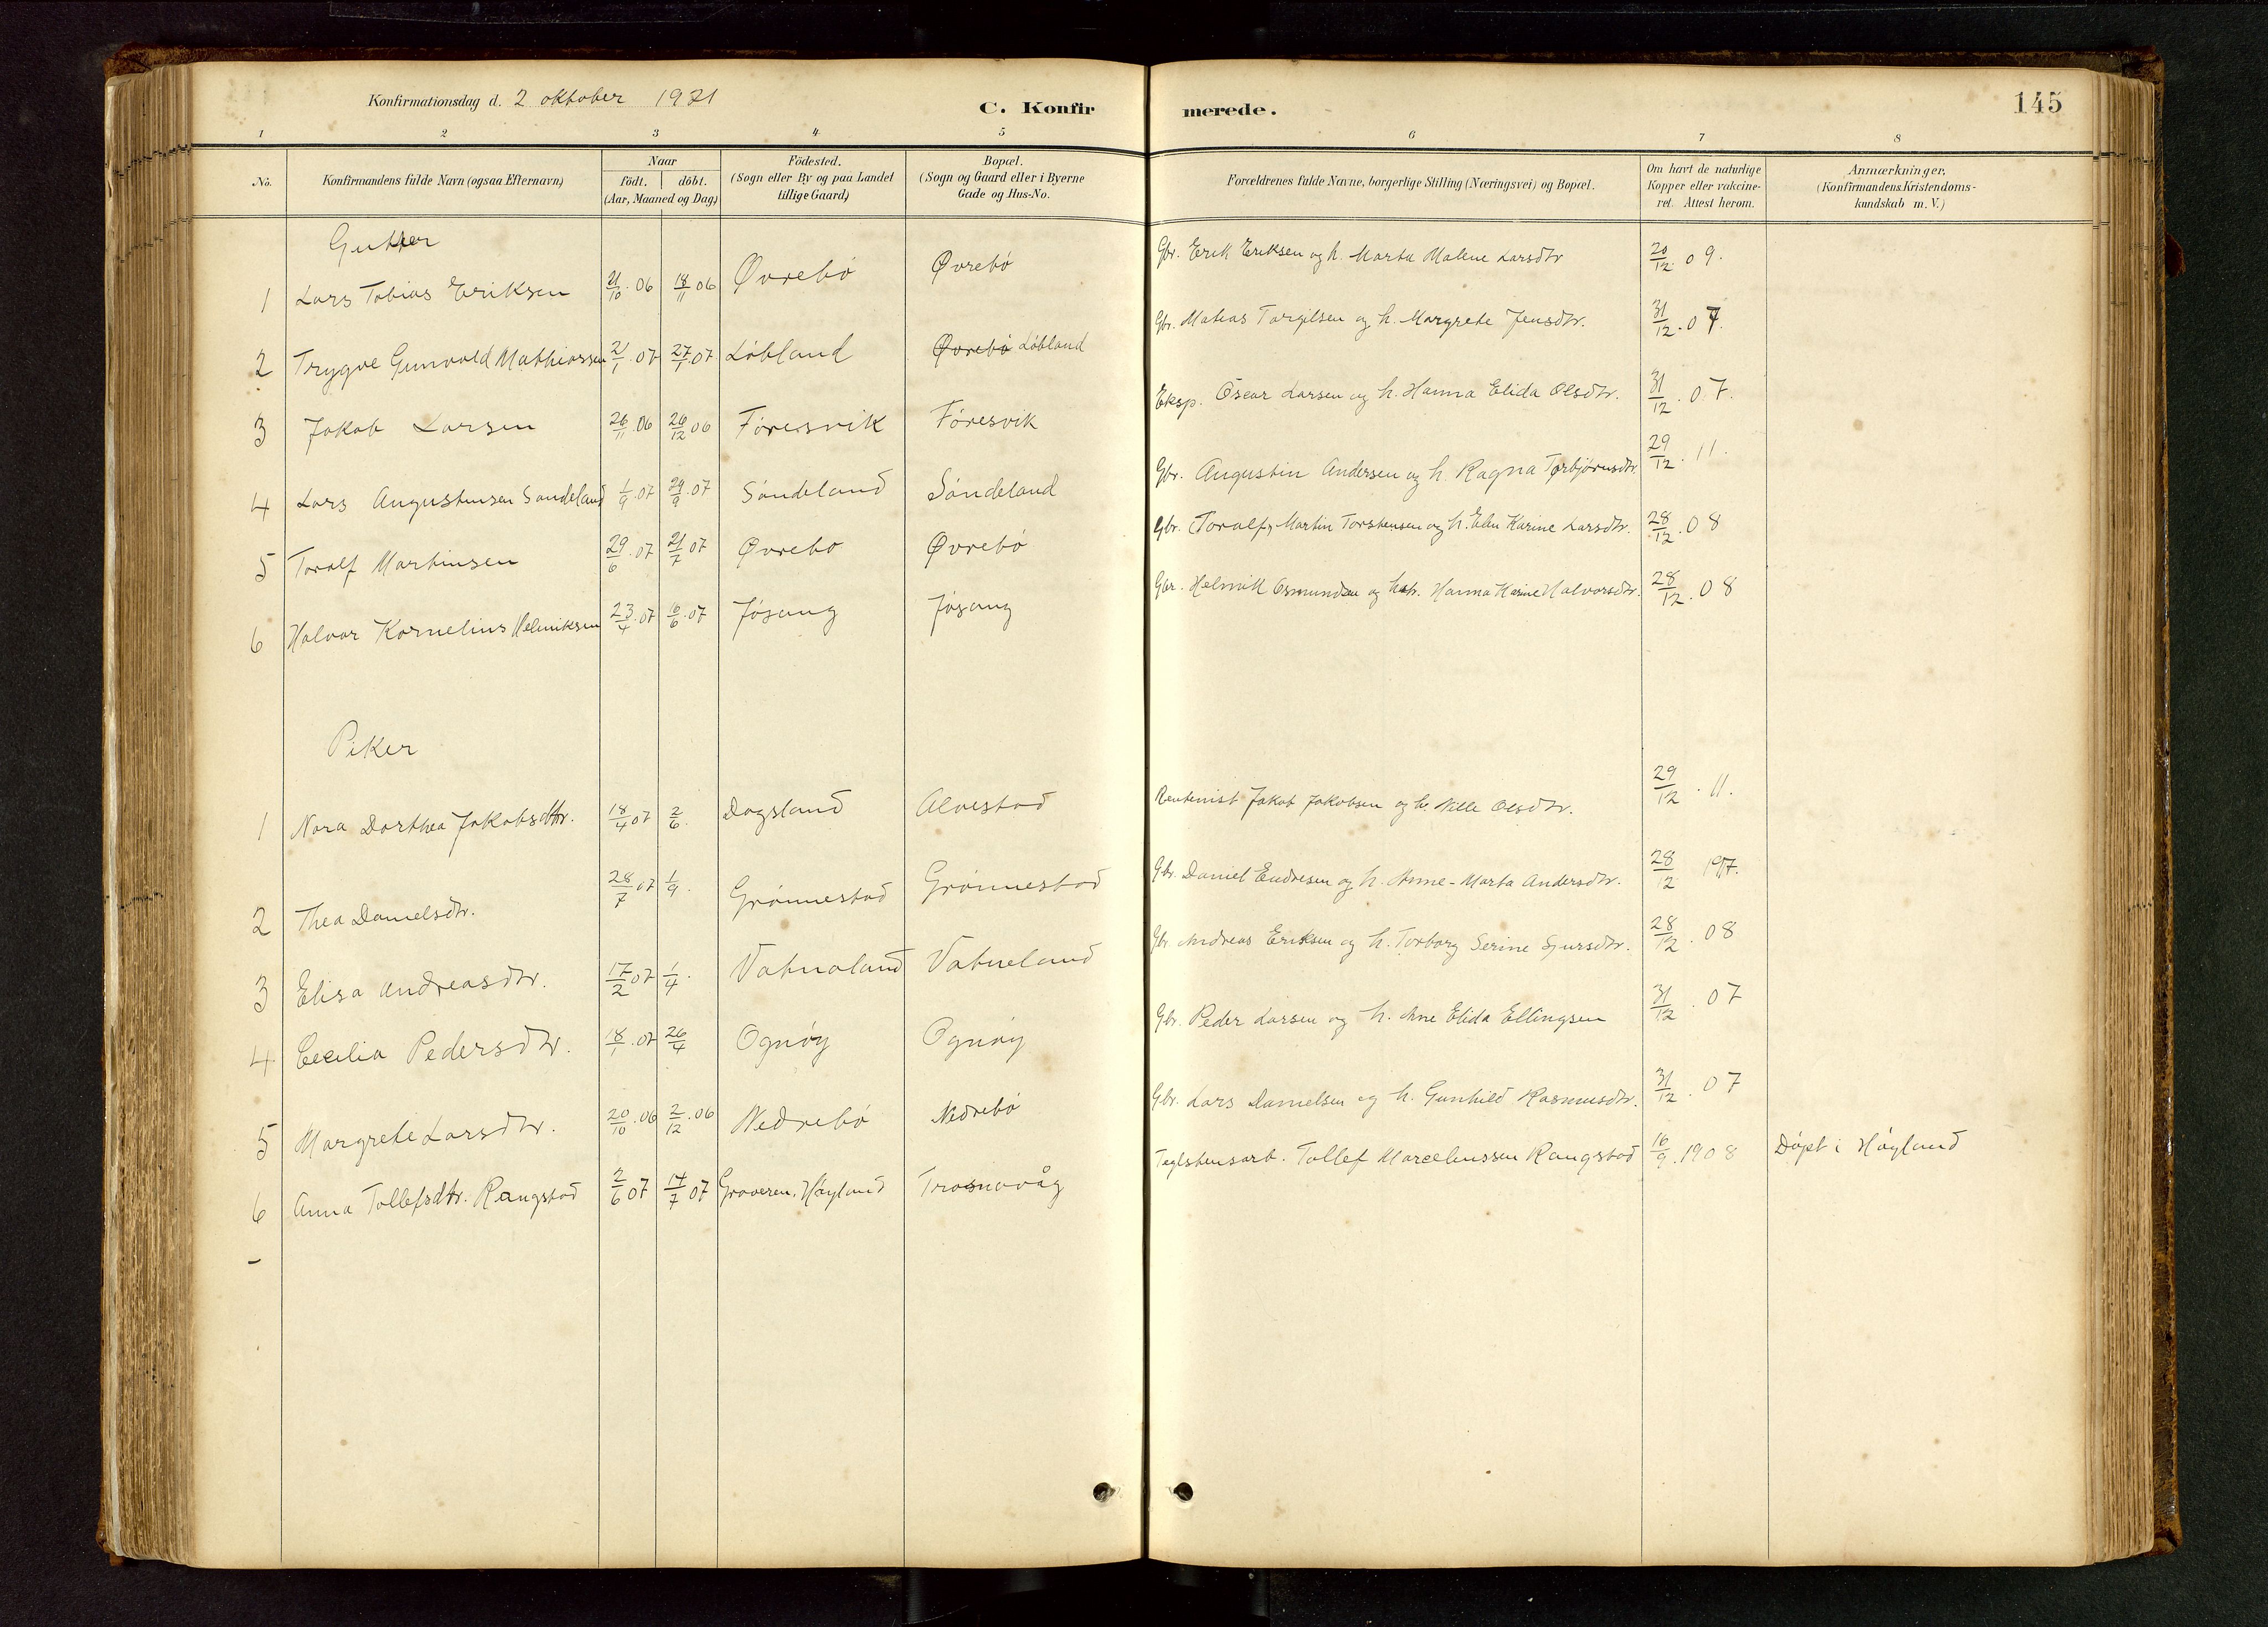 Konfirmationsdag d. 2 oktober 1921
C. Konfirmerede.
145
1 2 3 4 5 6 7 8
No.
Konfirmandens fulde Navn (ogsaa Efternavn)
Naar
födt. | döbt.
(Aar, Maaned og Dag)
Födested.
(Sogn eller By og paa Landet
tillige Gaard)
Bopæl.
(Sogn og Gaard eller i Byerne
Gade og Hus-No.
Forældrenes fulde Navne, borgerlige Stilling (Næringsvei) og Bopæl.
Om havt de naturlige
Kopper eller vakcine-
ret. Attest herom.
Anmærkninger,
(Konfirmandens Kristendoms-
kundskab m. V.)
Gutter
1 Lars Tobias Eriksen 21/10.06 18/11 06 Øvrebö Øvrebö Gbr. Erik Eriksen og h. Marta Malene Larsdtr 20/12.09.
2 Trygve Gunvald Mathiassen 21/1.07 27/1.07 Löbland Øvrebö Löbland Gbr. Matias Torgilsen og h. Margrete Jensdtr. 31/12.07.
3 Jakob Larsen 26/11.06 26/12 06 Föresvik Föresvik Eksp. Oscar Larsen og h. Hanna Elida Olsdtr. 31/12.07.
4 Lars Augustinsen Söndeland 1/9.07 29/9.07 Söndeland Söndeland Gbr. Augustin Andersen og h. Ragna Torbjörnsdtr. 29/12.11.
5 Toralf Martinsen 29/6.07 21/7 07 Øvrebo Øvrebö Gbr. (Toralf) Martin Torstensen og h. Elen Karine Larsdtr. 28/12.08
6 Halvor Kornelius Helmiksen 23/4.07 16/6.07 Jösang Jösang Gbr. Helmik Osmundsen og h. Hanna Karine Halvorsdtr. 28/12.08
Piker
1 Nora Dorthea Jakobsdtr. 18/4 07 2/6. Dagsland Alvestad Rentenist Jakob Jakobsen og h. Nille Olsdtr. 29/12.11.
2 Thea Danielsdtr. 28/7 07 1/9. Grönnestad Grönnestad Gbr. Daniel Endresen og h. Anne-Marta Andersdtr. 28/12
3 Elisa Andreasdtr. 17/2 07 1/4. Vatnaland Vatneland Gbr. Andreas Eriksen og h. Torborg Serine Sjursdtr. 28/12.08
4 Cecilia Pedersdtr. 18/1.07 26/4 Ognöy Ognöy Gbr. Peder Larsen og h. Ane Elida Ellingsen 31/12.07
5 Margrete Larsdtr. 20/10.06 2/12.06 Nedrebö Nedrebö Gbr. Lars Danielsen og h. Gunhild Rasmusdtr. 31/12.07
6 Anna Tollefsdtr. Rangstad 2/6 07 14/7 07 Graveren, Höyland Trosnavåg Teglstensarb. Tollef Marceliussen Rangstad 16/9.1908 Döpt i Höyland